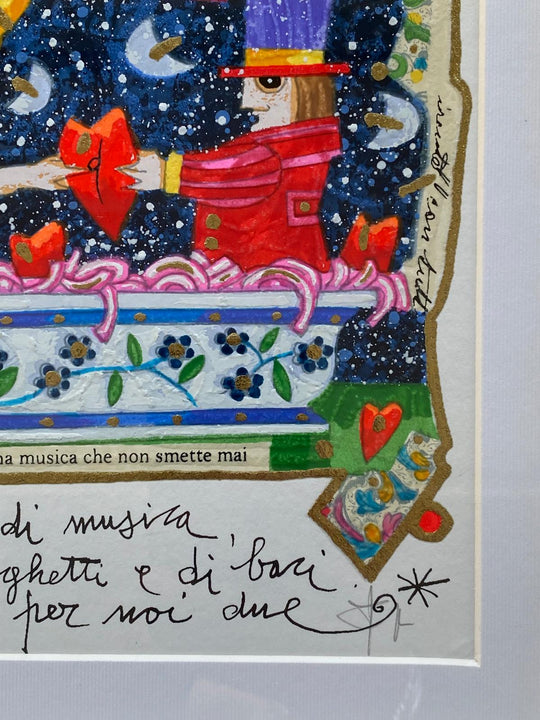 con tutti
na musica che non smette mai
di musica,
ghetti e di baci
per noi due